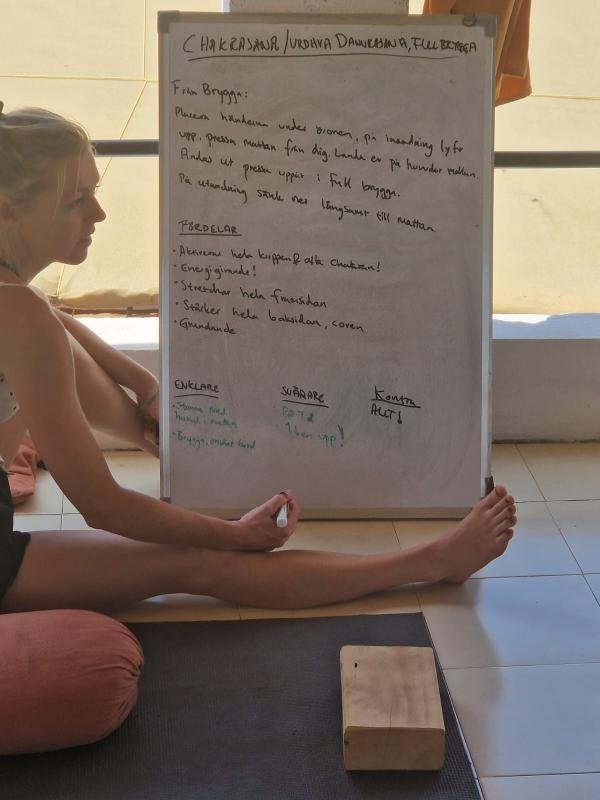 CHAKRASANA/URDHVA DANURASANA, FULL BRYGGA
Från Brygga:
Placera händerna under öronen, på inandning lyft
upp, pressa mattan från dig. Landa er på huvudet mellan.
Andas ut pressa uppåt i full brygga.
På utandning sänk ner långsamt till mattan
FÖRDELAR
· Aktiverar hela kroppen & alla chakran!
· Energigivande!
· Stretchar hela framsidan
· Stärker hela baksidan, coren
· Grundande
ENKLARE
· Stanna med
huvud i mattan
· Brygga, omvänt bord
SVÅRARE
1 ben upp!
Kontra
ALLT!